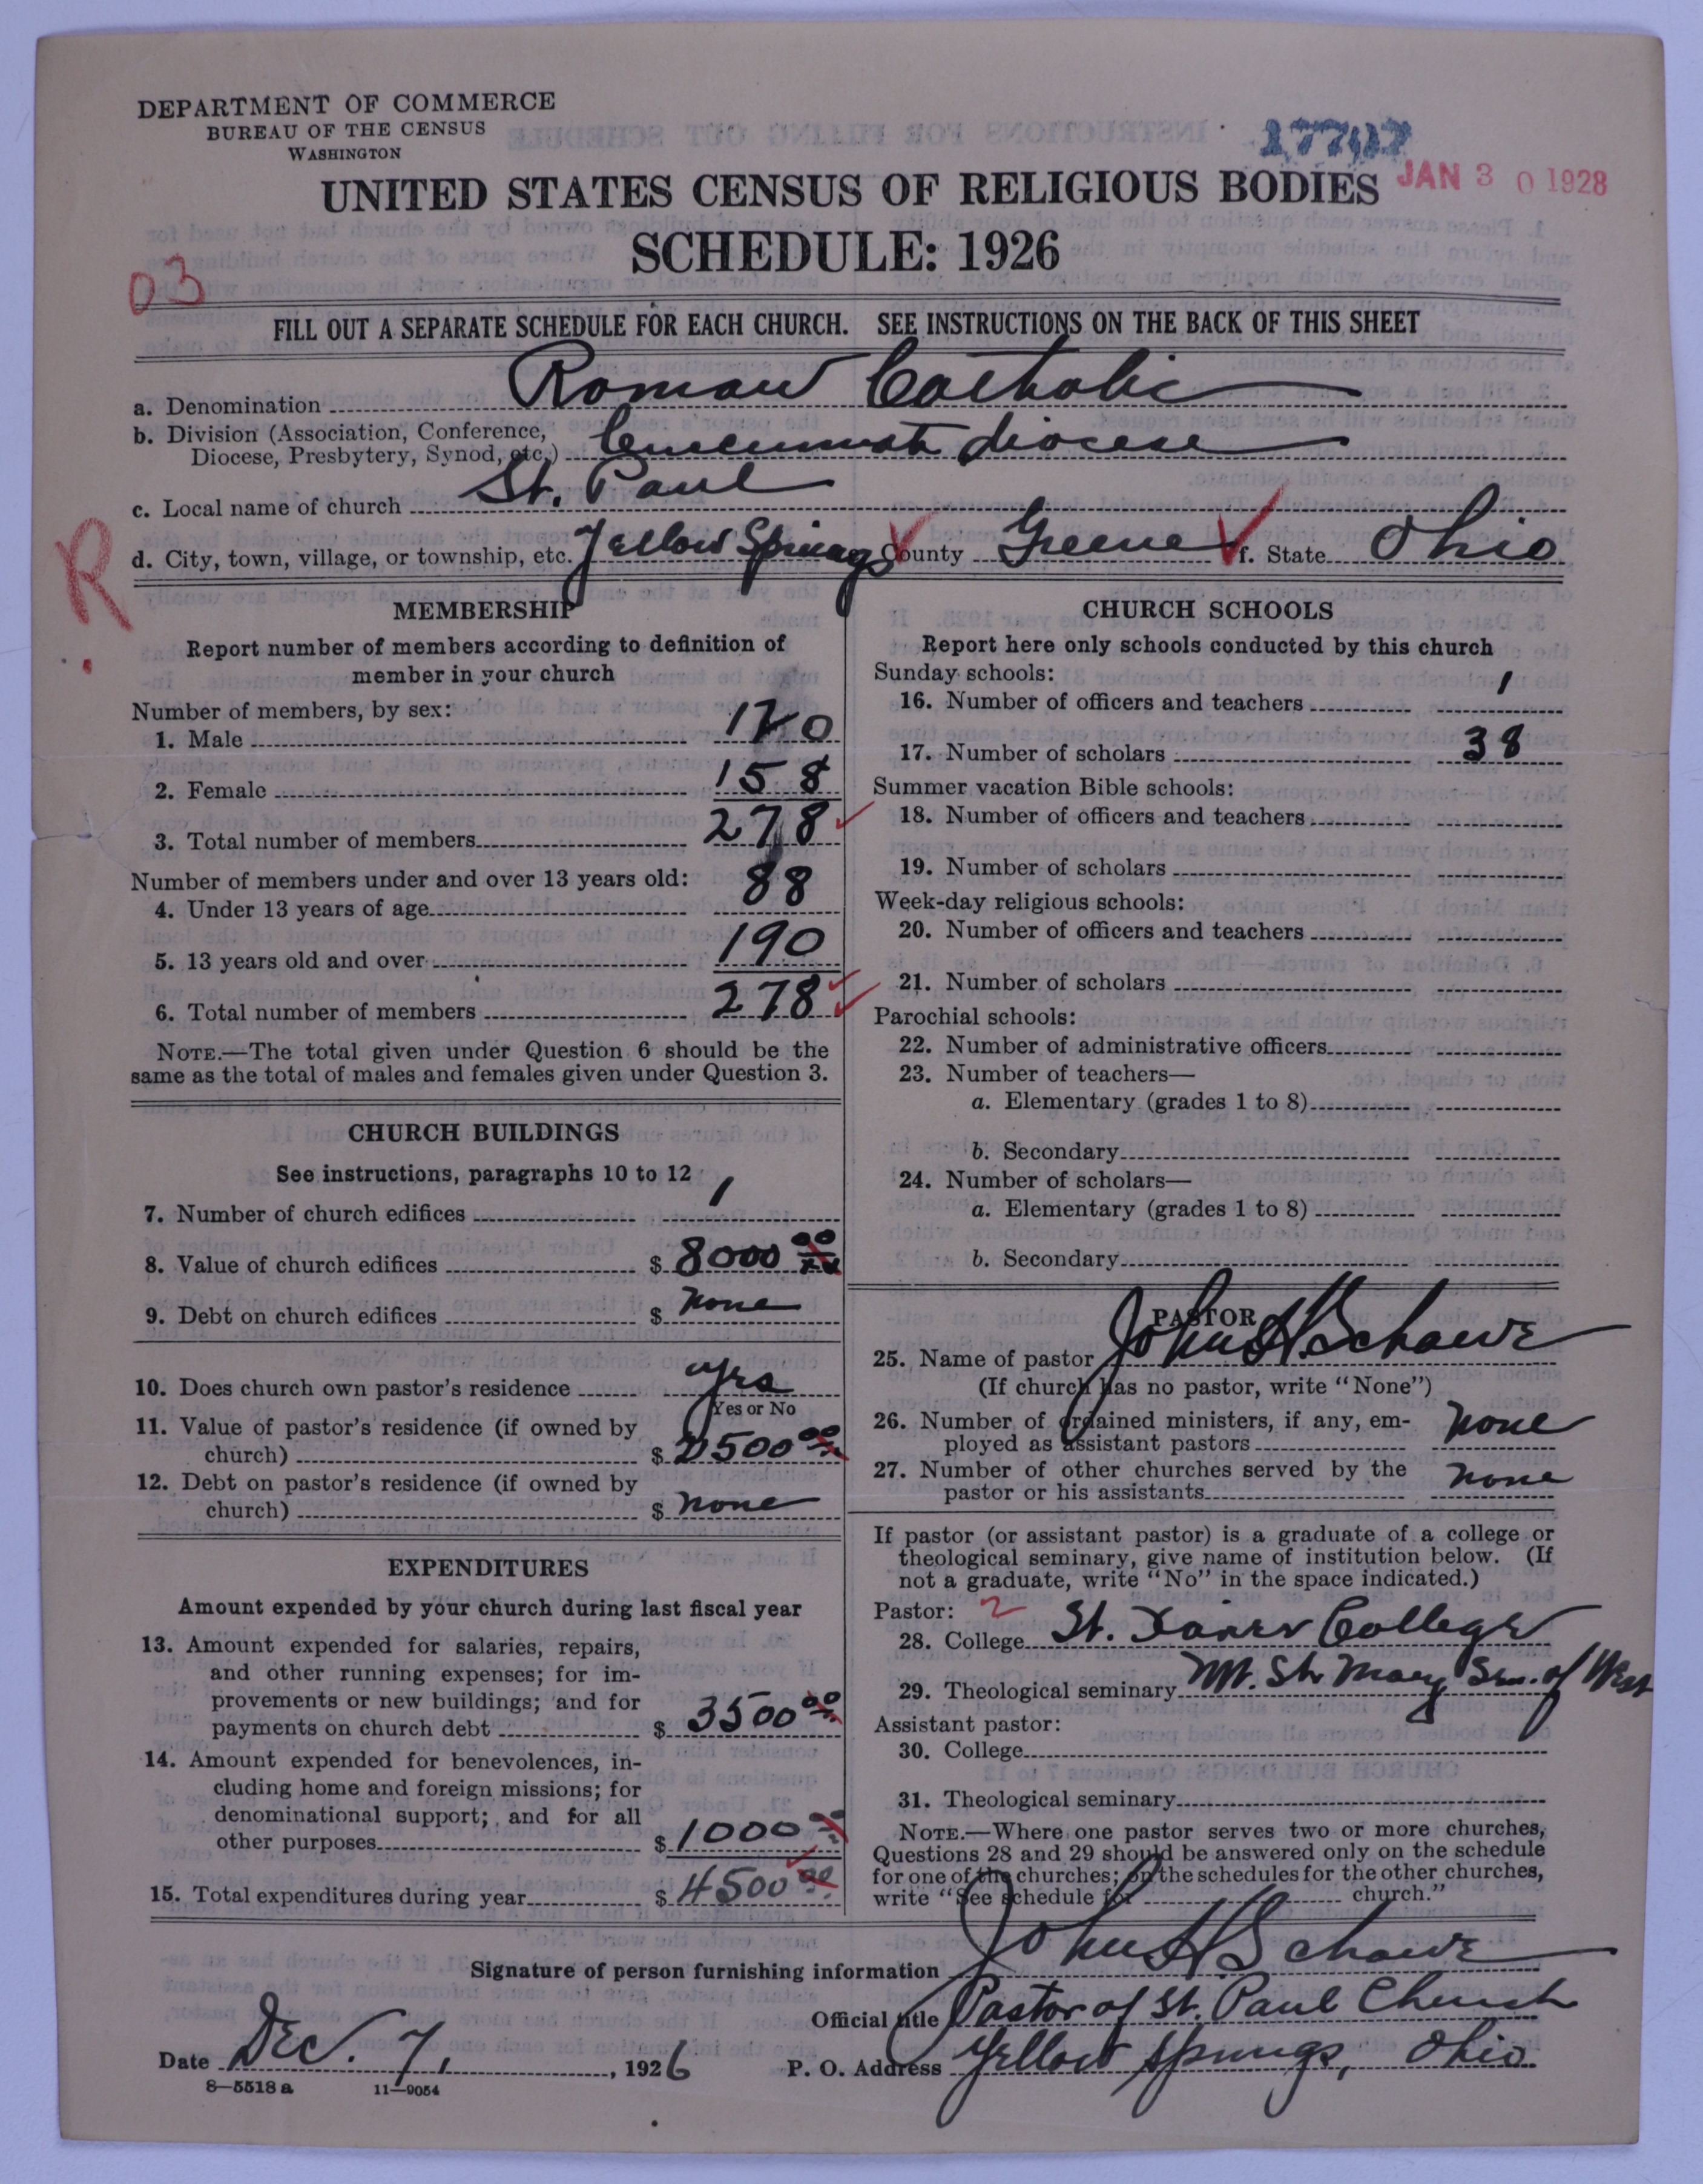 DEPARTMENT OF COMMERCE
BUREAU OF THE CENSUS
WASHINGTON
17707
JAN 30 1928
UNITED STATES CENSUS OF RELIGIOUS BODIES
SCHEDULE: 1926
03
FILL OUT A SEPARATE SCHEDULE FOR EACH CHURCH. SEE INSTRUCTIONS ON THE BACK OF THIS SHEET
a. Denomination Roman Catholic
b. Division (Association, Conference,
Diocese, Presbytery, Synod, etc.) Cincinnati diocese
c. Local name of church St. Paul
R
d. City, town, village, or township, etc. Yellow Springs County Greene f. State Ohio
MEMBERSHIP
Report number of members according to definition of
member in your church
Number of members, by sex:
1. Male 120
2. Female 158
3. Total number of members 278
Number of members under and over 13 years old:
4. Under 13 years of age 88
5. 13 years old and over 190
6. Total number of members 278
NOTE.—The total given under Question 6 should be the
same as the total of males and females given under Question 3.
CHURCH BUILDINGS
See instructions, paragraphs 10 to 12
7. Number of church edifices 1
8. Value of church edifices $ 8000 00
9. Debt on church edifices $ none
10. Does church own pastor's residence yes
Yes or No
11. Value of pastor's residence (if owned by
church) $ 2500 00
12. Debt on pastor's residence (if owned by
church) $ none
EXPENDITURES
Amount expended by your church during last fiscal year
13. Amount expended for salaries, repairs,
and other running expenses; for im-
provements or new buildings; and for
payments on church debt $ 3500 00
14. Amount expended for benevolences, in-
cluding home and foreign missions; for
denominational support; and for all
other purposes $ 1000 00
15. Total expenditures during year $ 4500 00
CHURCH SCHOOLS
Report here only schools conducted by this church
Sunday schools:
16. Number of officers and teachers 1
17. Number of scholars 38
Summer vacation Bible schools:
18. Number of officers and teachers
19. Number of scholars
Week-day religious schools:
20. Number of officers and teachers
21. Number of scholars
Parochial schools:
22. Number of administrative officers
23. Number of teachers—
a. Elementary (grades 1 to 8)
b. Secondary
24. Number of scholars—
a. Elementary (grades 1 to 8)
b. Secondary
PASTOR
25. Name of pastor John H Schawe
(If church has no pastor, write "None")
26. Number of ordained ministers, if any, em-
ployed as assistant pastors none
27. Number of other churches served by the
pastor or his assistants none
If pastor (or assistant pastor) is a graduate of a college or
theological seminary, give name of institution below. (If
not a graduate, write "No" in the space indicated.)
Pastor: 2
28. College St. Xavier College
29. Theological seminary Mt. St Mary Sem. of West
Assistant pastor:
30. College
31. Theological seminary
NOTE.—Where one pastor serves two or more churches,
Questions 28 and 29 should be answered only on the schedule
for one of the churches; on the schedules for the other churches,
write "See schedule for church."
Signature of person furnishing information John H Schawe
Official title Pastor of St. Paul Church
Date Dec. 7, 1926 P. O. Address Yellow Springs, Ohio
8—5518 a 11—9054